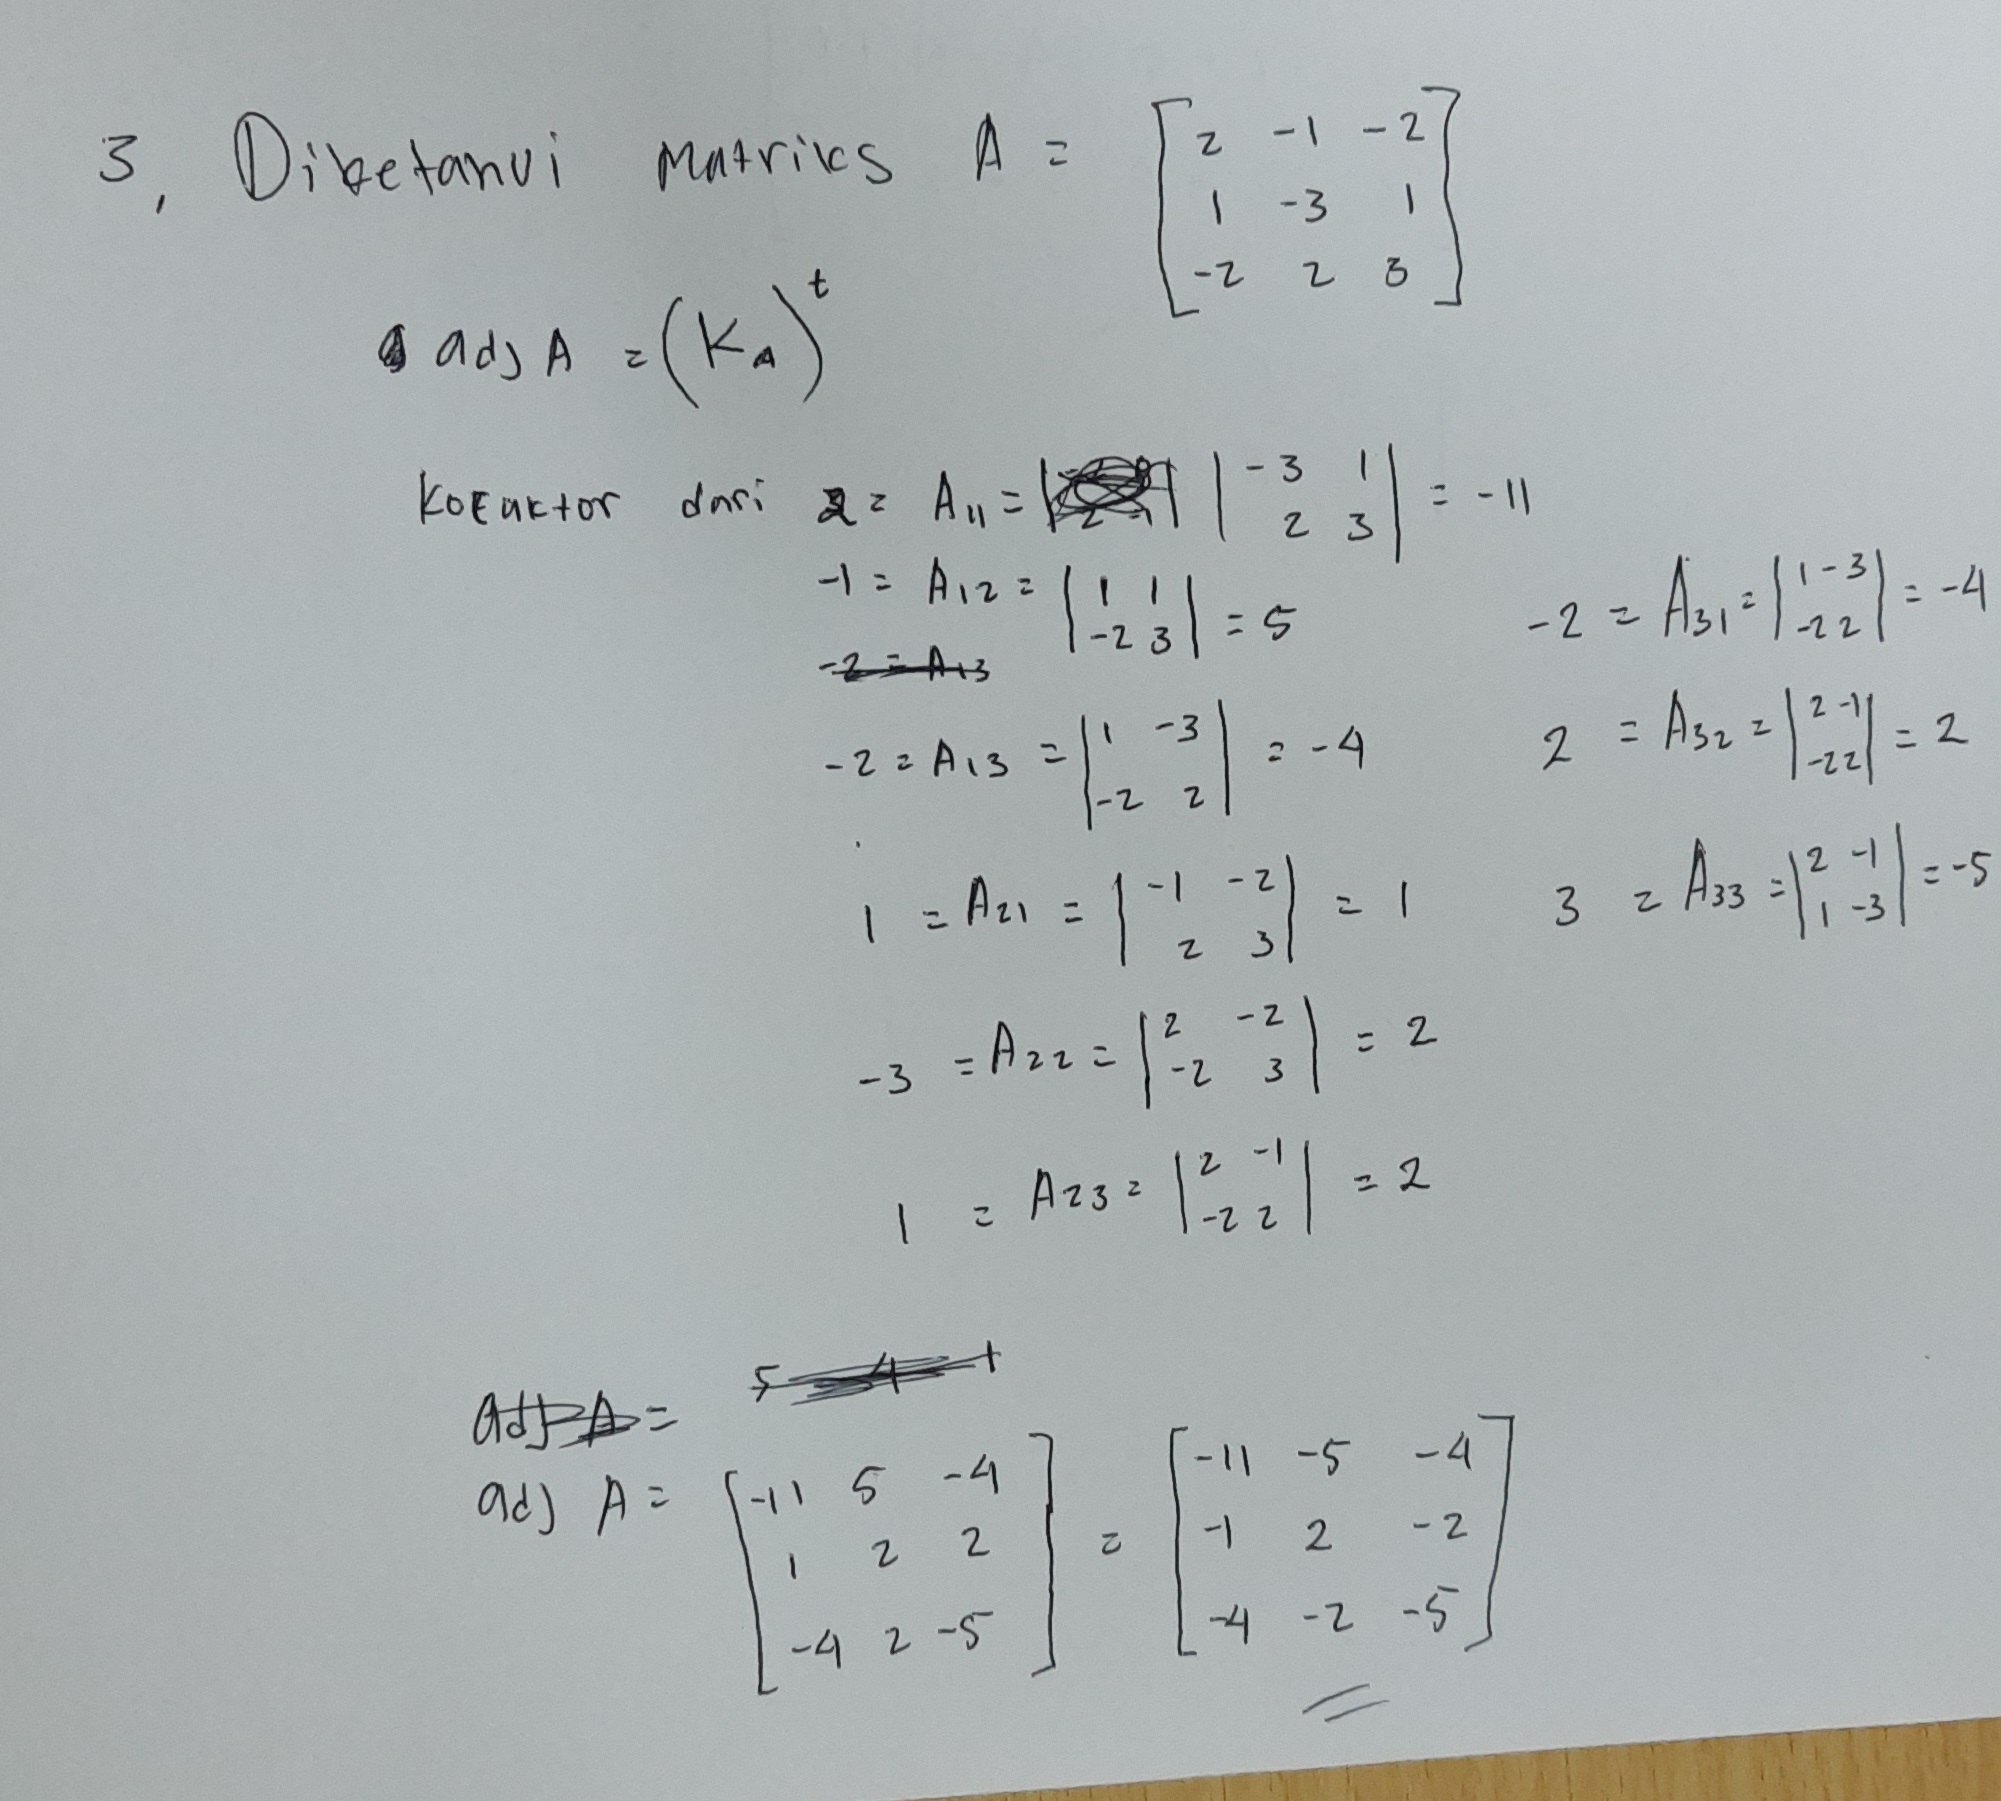 3, Diketahui Matriks A = [2 -1 -2
1 -3 1
-2 2 3]
adj A = (K_A)^t
Kofaktor dari 2 = A11 = |-3 1
2 3| = -11
-1 = A12 = |1 1
-2 3| = 5
-2 = A13
-2 = A13 = |1 -3
-2 2| = -4
1 = A21 = |-1 -2
2 3| = 1
-3 = A22 = |2 -2
-2 3| = 2
1 = A23 = |2 -1
-2 2| = 2
-2 = A31 = |1 -3
-2 2| = -4
2 = A32 = |2 -1
-2 2| = 2
3 = A33 = |2 -1
1 -3| = -5
adj A =
adj A = [-11 5 -4
1 2 2
-4 2 -5] = [-11 -5 -4
-1 2 -2
-4 -2 -5]